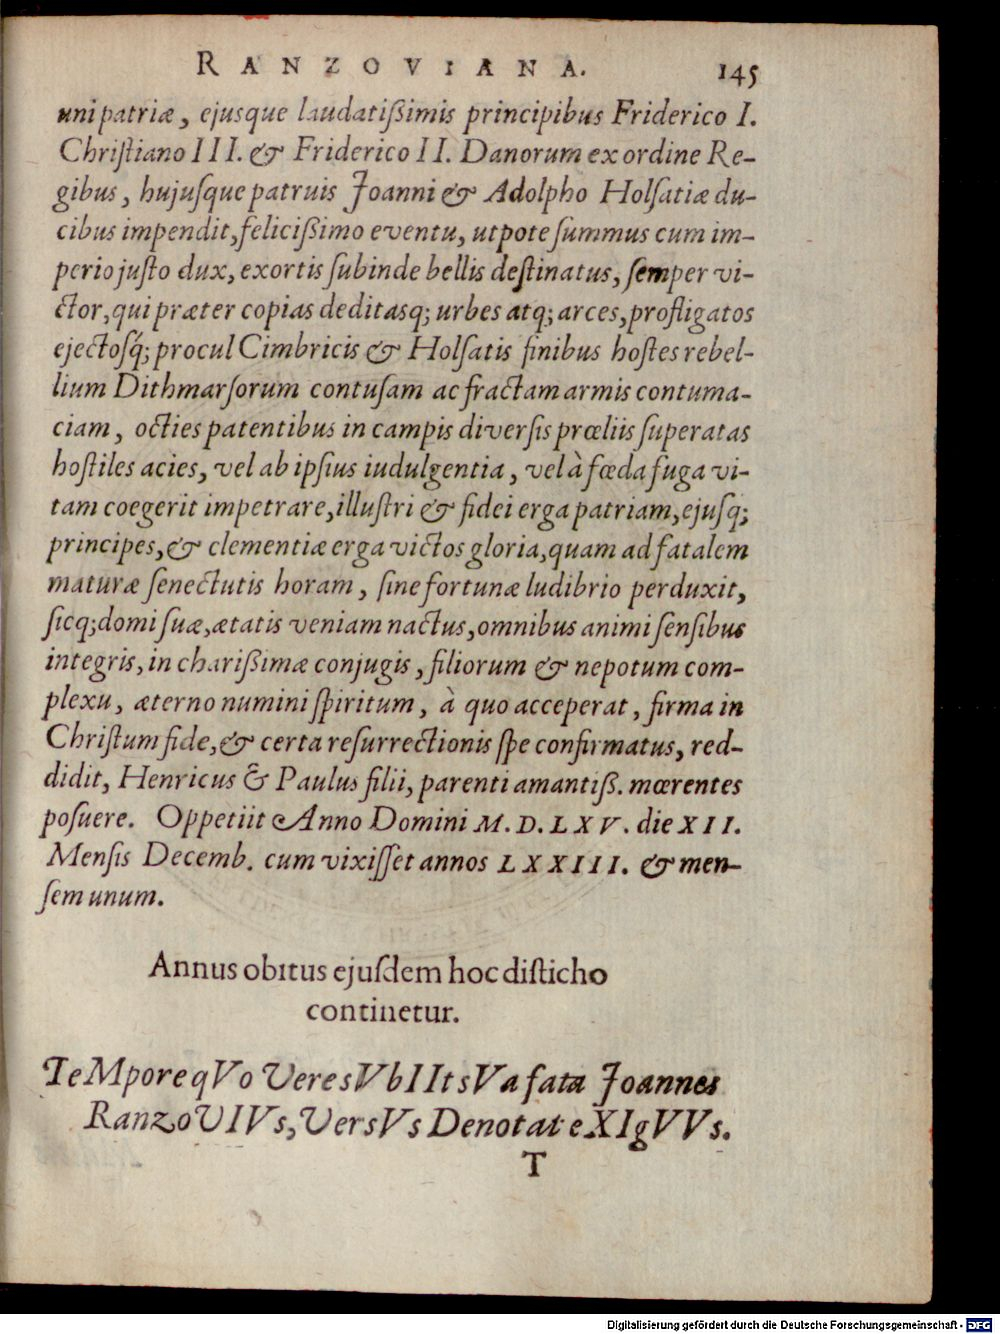 RANZOVIANA. 145
uni patriæ, ejusque laudatißimis principibus Friderico I.
Chriſtiano III. & Friderico II. Danorum ex ordine Re-
gibus, hujuſque patruis Joanni & Adolpho Holſatiæ du-
cibus impendit, felicißimo eventu, utpote ſummus cum im-
perio juſto dux, exortis ſubinde bellis deſtinatus, ſemper vi-
ctor, qui præter copias deditasq; urbes atq; arces, profligatos
ejectoſq́; procul Cimbricis & Holſatis finibus hoſtes rebel-
lium Dithmarſorum contuſam ac fractam armis contuma-
ciam, octies patentibus in campis diverſis prœliis ſuperatas
hoſtiles acies, vel ab ipſius iudulgentia, vel à fœda fuga vi-
tam coegerit impetrare, illuſtri & fidei erga patriam, ejuſq;
principes, & clementiæ erga victos gloria, quam ad fatalem
maturæ ſenectutis horam, ſine fortunæ ludibrio perduxit,
ſicq; domi ſuæ, ætatis veniam nactus, omnibus animi ſenſibus
integris, in charißimæ conjugis, filiorum & nepotum com-
plexu, æterno numini ſpiritum, à quo acceperat, firma in
Chriſtum fide, & certa reſurrectionis ſpe confirmatus, red-
didit, Henricus & Paulus filii, parenti amantiß. mœrentes
poſuere. Oppetiit Anno Domini M.D.LXV. die XII.
Menſis Decemb. cum vixiſſet annos LXXIII. & men-
ſem unum.
Annus obitus ejuſdem hoc diſticho
continetur.
TeMpore qVo VeresVbIIt sVa fata Joannes
RanzoVIVs, VersVs Denotat eXIgVVs.
T
Digitalisierung gefördert durch die Deutsche Forschungsgemeinschaft - DFG